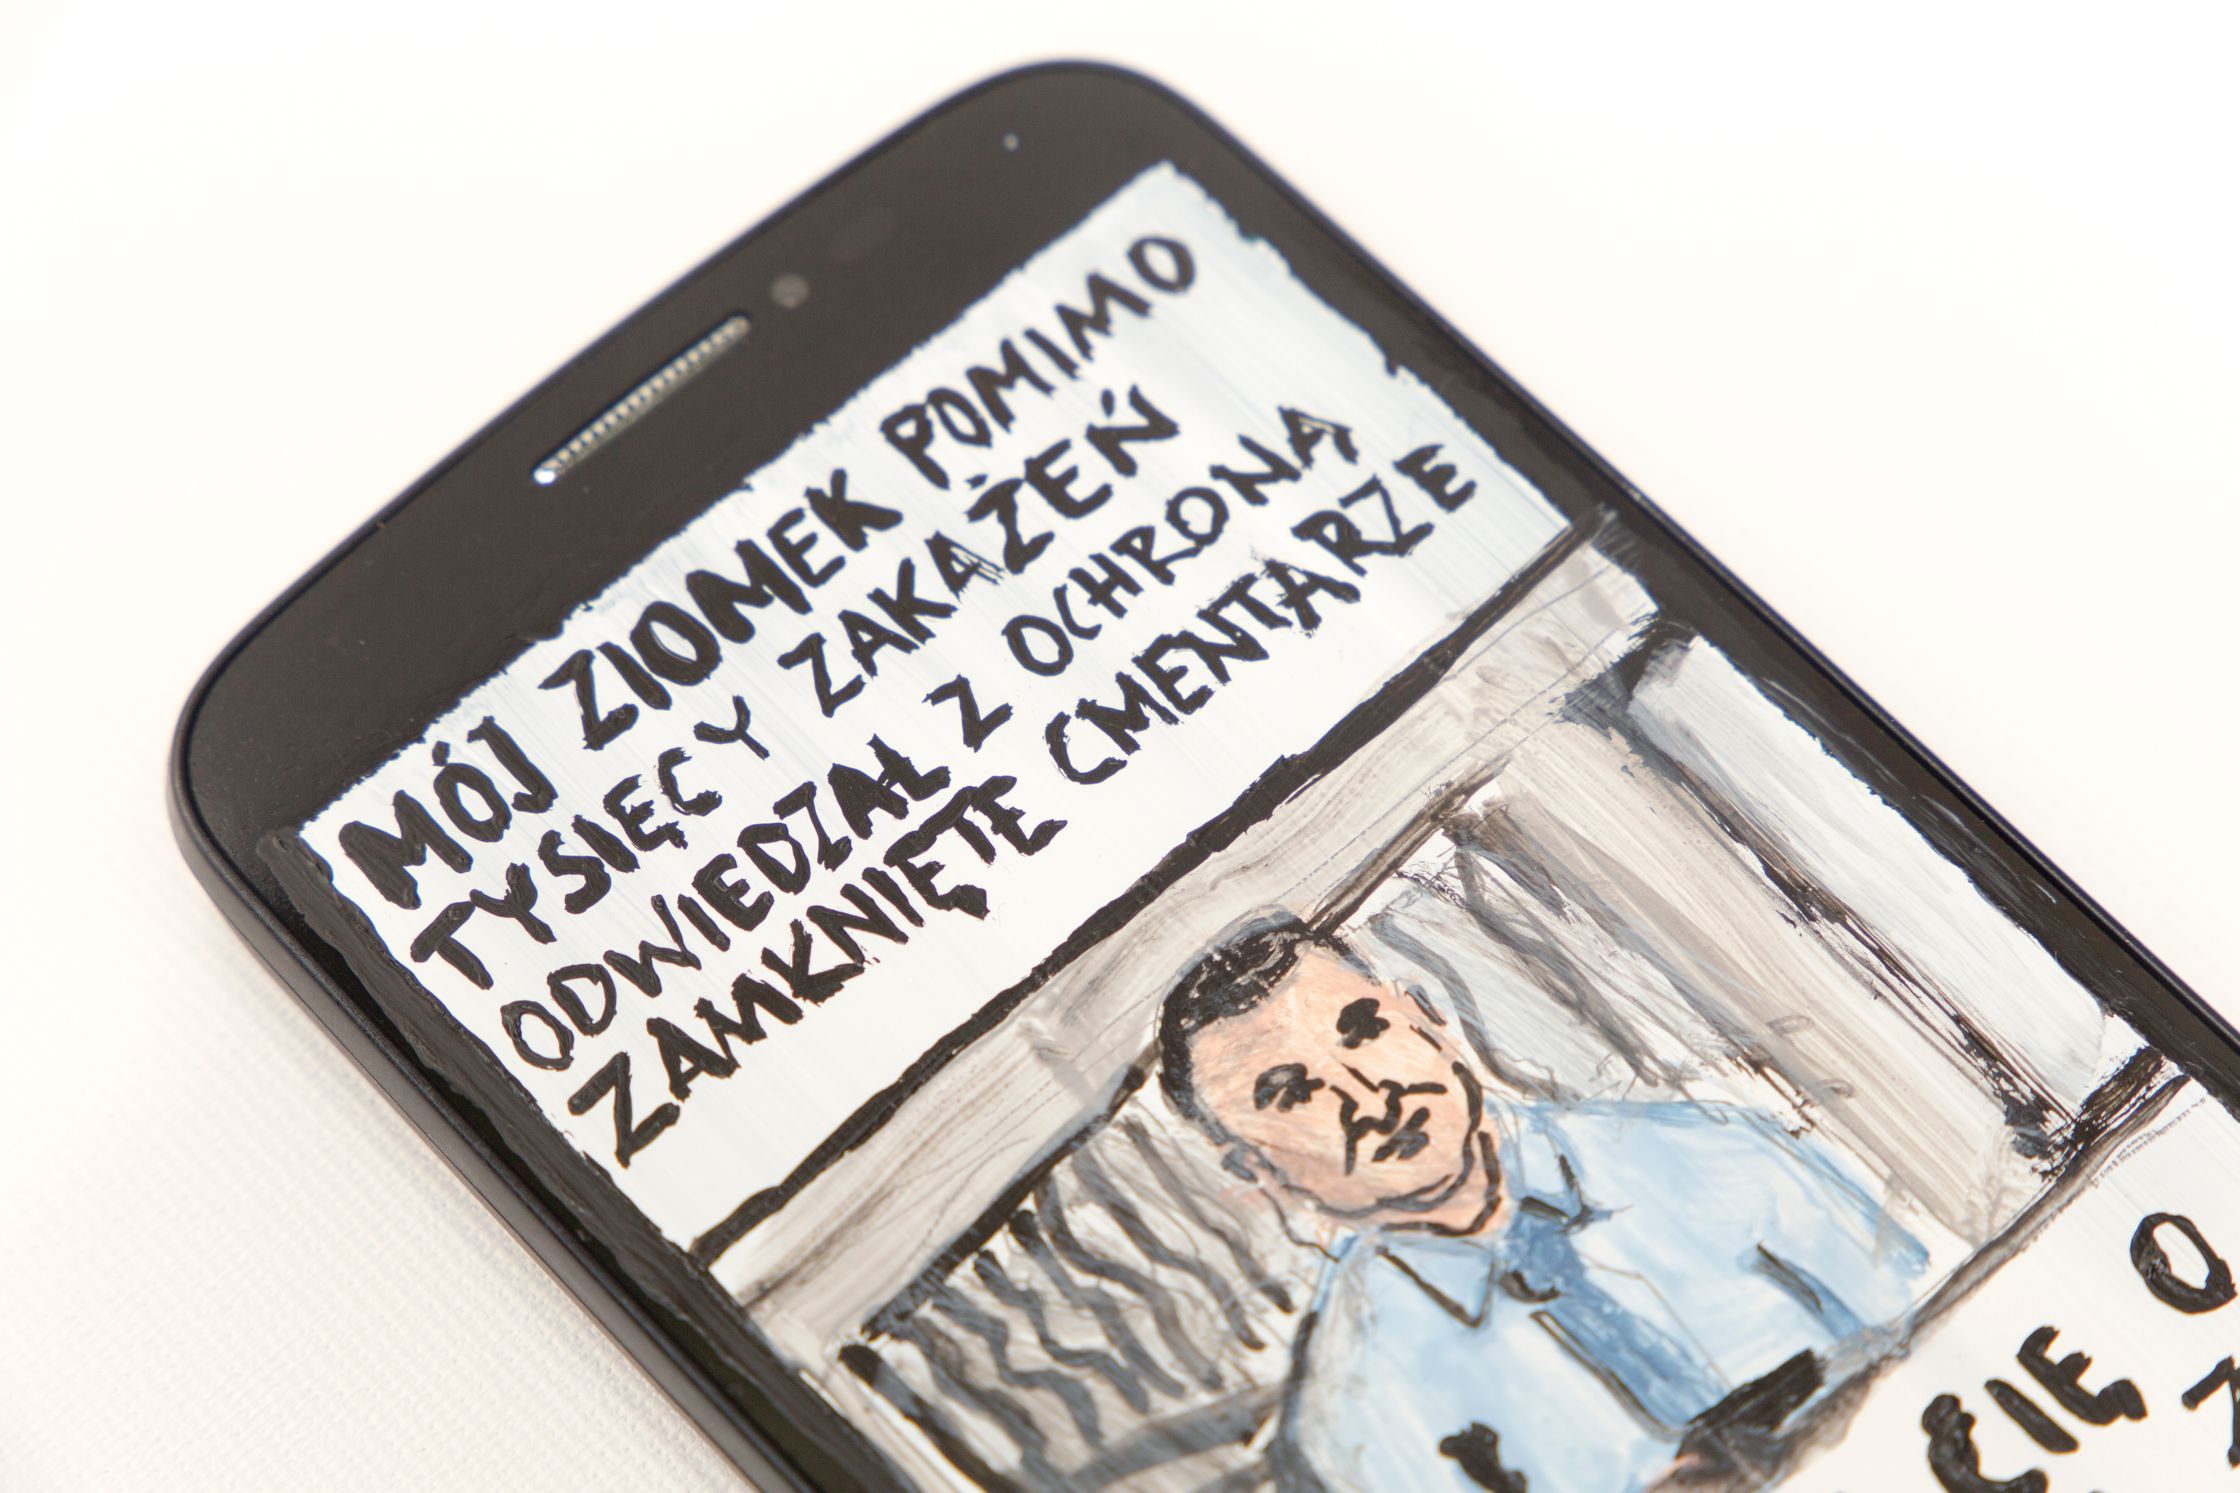 MÓJ ZIOMEK POMIMO
TYSIĘCY ZAKAŻEŃ
ODWIEDZAŁ Z OCHRONĄ
ZAMKNIĘTE CMENTARZE